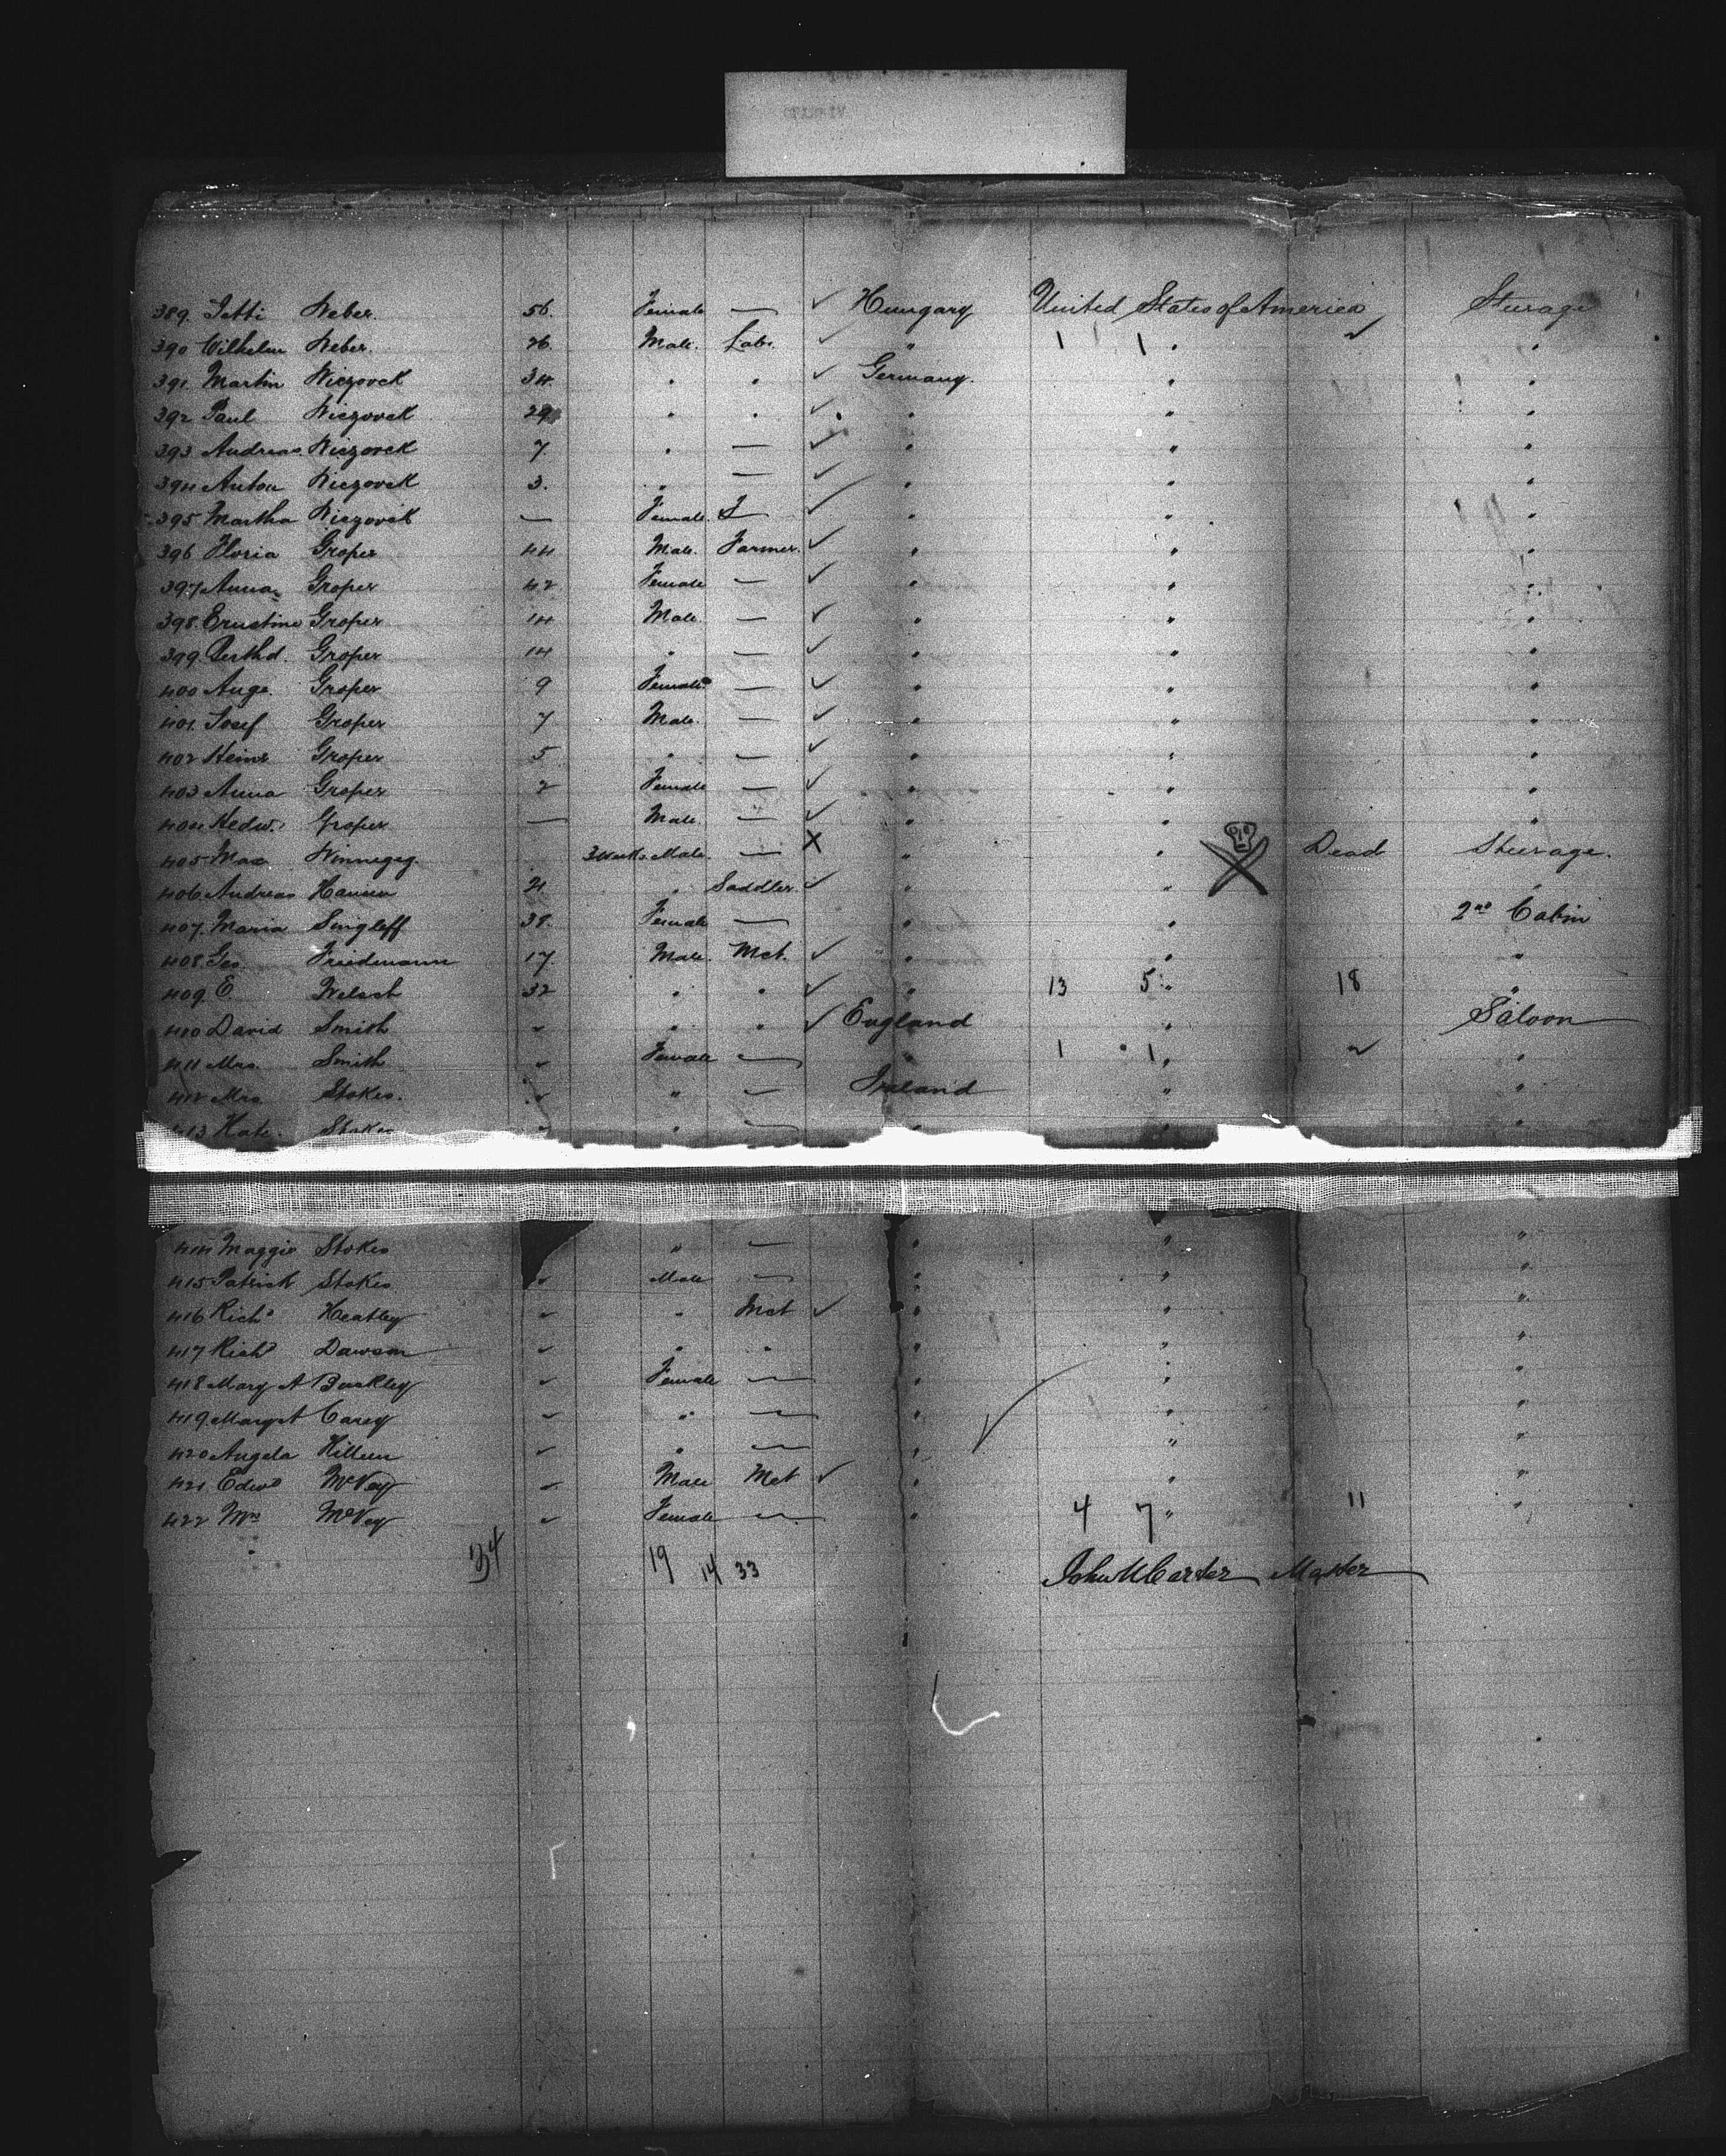 389. Jetti Weber. 56. Female — ✓ Hungary United States of America Steerage
390 Wilhelm Weber. 26. Male. Labr. ✓ " 1 1 " 2 "
391. Martin Wiezorek 34 " " ✓ Germany. " "
392 Paul Wiezorek 29 " " ✓ " " "
393. Andreas Wiezorek 7. " — ✓ " " "
394 Anton Wiezorek 3. " — ✓ " " "
395 Martha Wiezorek — Female. ✓ " " "
396 Groper 44 Male. Farmer. ✓ " " "
397 Anna Groper 42 Female — ✓ " " "
398. Ernstine Groper 14 Male. — ✓ " " "
399. Berthd. Groper 14 " — ✓ " " "
400 Auge. Groper 9 Female — ✓ " " "
401. Josef Groper 7 Male. — ✓ " " "
402 Heinr Groper 5 " — ✓ " " "
403 Anna Groper 2 Female — ✓ " " "
404 Hedw. Groper — Male. — ✓ " " "
405 Max Winnegeg. 3 weeks Male. — X " " Dead Steerage.
406 Andreas Hannen 21. " Saddler. ✓ " " "
407. Maria Singleff 38. Female — " " 2nd Cabin
408. Geo. Friedmann 17. Male. Mct. ✓ " " "
409. E. Welsch 32 " " ✓ " 13 5 " 18 "
410 David Smith ✓ " " ✓ England " Saloon
411 Mrs. Smith ✓ Female — " 1 1 " 2 "
412 Mrs. Stokes. ✓ " — Ireland " "
413 Kate. Stokes ✓ " — " " "
414 Maggie Stokes " — " " "
415 Patrick Stokes ✓ Male — " " "
416 Richd Heatley ✓ " Mct ✓ " " "
417 Richd Dawson ✓ " " " " "
418 Mary A Buckley ✓ Female — " " "
419 Margt Carey ✓ " — " " "
420 Angela Killeen ✓ " — " " "
421 Edwd McVey ✓ Male Mct ✓ " " "
422 Mrs McVey ✓ Female — " 4 7 " 11 "
34 19 14 33 John McCarter Master